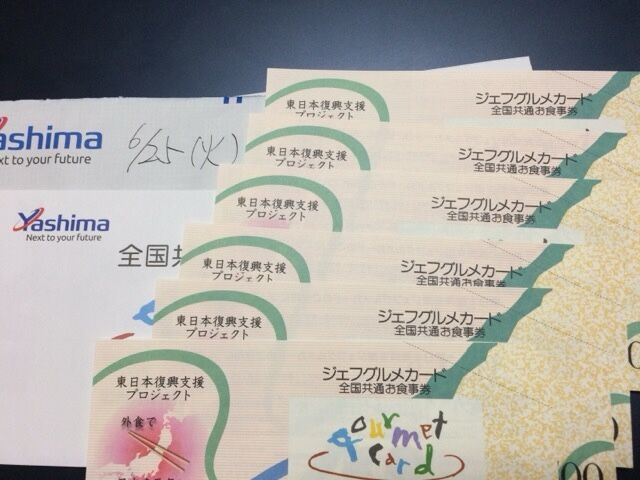 Yashima
Next to your future
6/25(火)
Yashima
Next to your future
全国共
東日本復興支援
プロジェクト
ジェフグルメカード
全国共通お食事券
東日本復興支援
プロジェクト
ジェフグルメカード
全国共通お食事券
東日本復興支援
プロジェクト
ジェフグルメカード
全国共通お食事券
東日本復興支援
プロジェクト
ジェフグルメカード
全国共通お食事券
東日本復興支援
プロジェクト
ジェフグルメカード
全国共通お食事券
東日本復興支援
プロジェクト
外食で
ジェフグルメカード
全国共通お食事券
gourmet
card
00